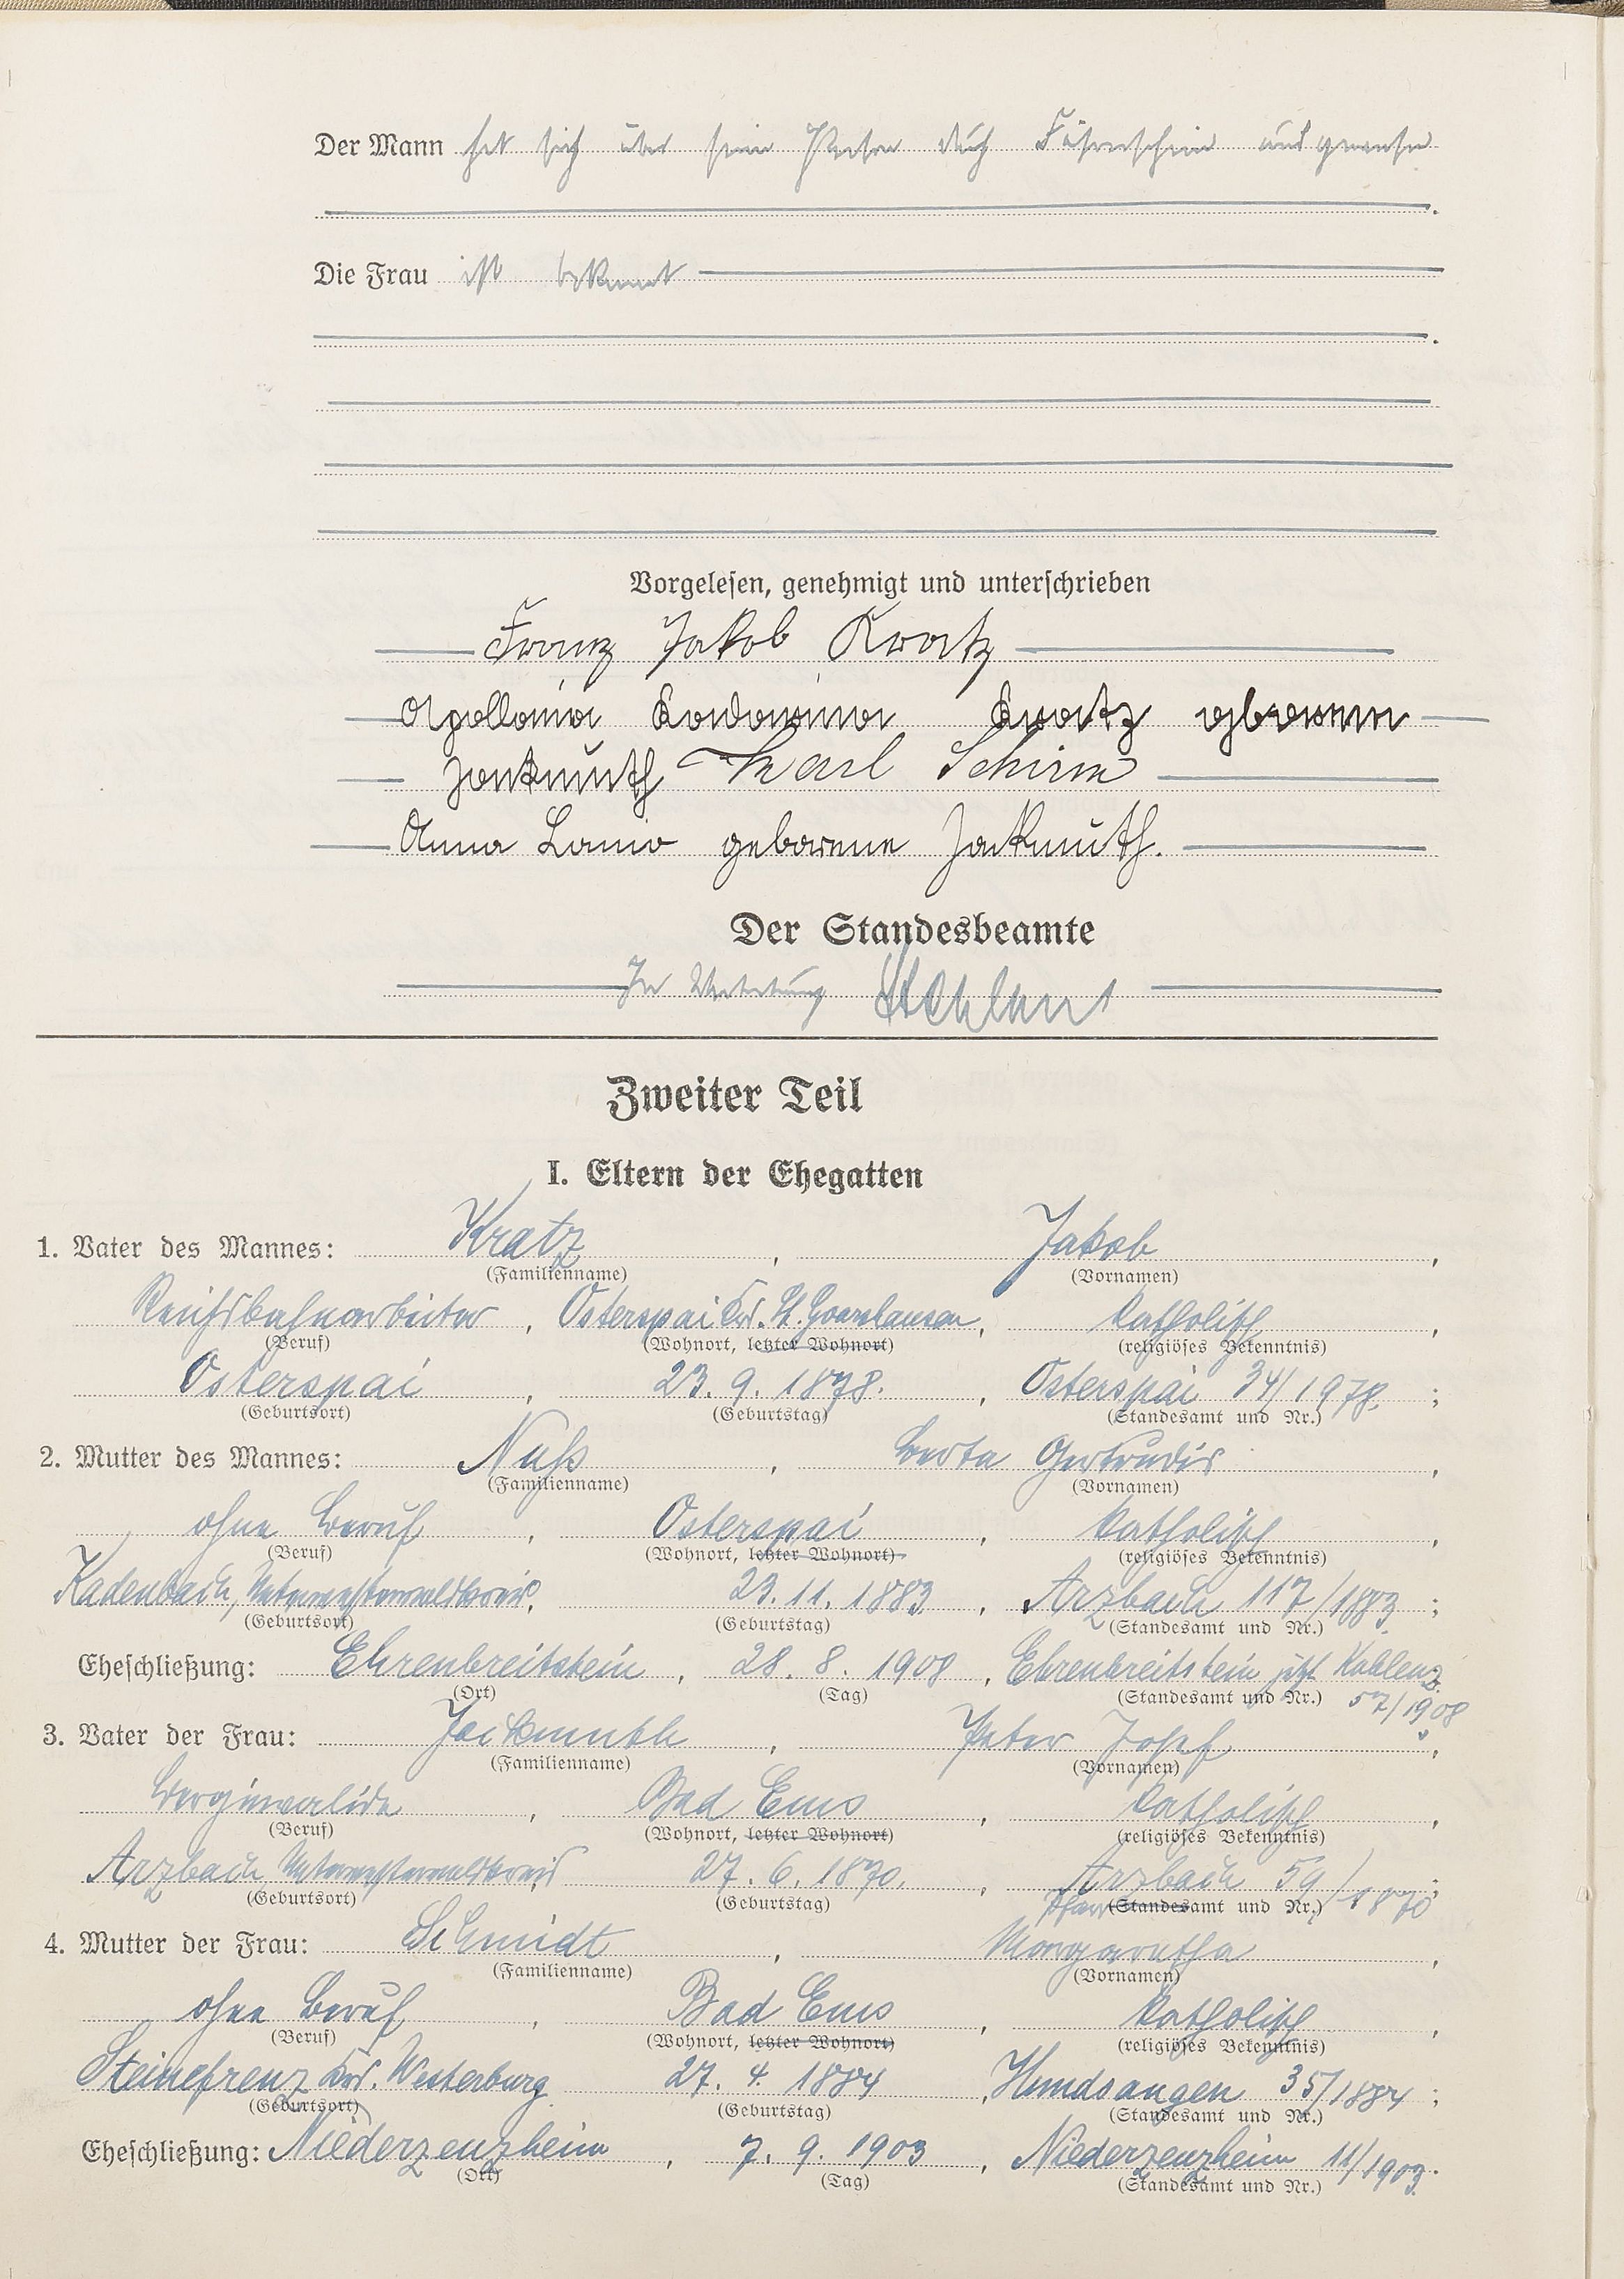 Der Mann hat sich über seine Person durch Führerschein ausgewiesen
Die Frau ist bekannt
Vorgelesen, genehmigt und unterschrieben
Franz Jakob Kratz
Apollonia Kratz geborenen
Jackmuth Karl Schirm
Anna geborene Jackmuth.
Der Standesbeamte
In Vertretung
Zweiter Teil
I. Eltern der Ehegatten
1. Vater des Mannes: Kratz, Jakob,
(Familienname) (Vornamen)
Reichsbahnarbeiter, Osterspai Krs. St. Goarshausen, katholisch,
(Beruf) (Wohnort, letzter Wohnort) (religiöses Bekenntnis)
Osterspai, 23. 9. 1878., Osterspai 34/1978.;
(Geburtsort) (Geburtstag) (Standesamt und Nr.)
2. Mutter des Mannes: Nuß, Berta Gertrudis,
(Familienname) (Vornamen)
ohne Beruf, Osterspai, katholisch,
(Beruf) (Wohnort, letzter Wohnort) (religiöses Bekenntnis)
Kadenbach, Unterwesterwaldkreis, 23. 11. 1883, Arzbach 117/1883.;
(Geburtsort) (Geburtstag) (Standesamt und Nr.)
Eheschließung: Ehrenbreitstein, 28. 8. 1908, Ehrenbreitstein jetzt Koblenz
(Ort) (Tag) (Standesamt und Nr.) 57/1908
3. Vater der Frau: Jackmuth, Peter Josef,
(Familienname) (Vornamen)
Berginvalide, Bad Ems, katholisch,
(Beruf) (Wohnort, letzter Wohnort) (religiöses Bekenntnis)
Arzbach Unterwesterwaldkreis, 27. 6. 1870., Arzbach 59/1870;
(Geburtsort) (Geburtstag) Pfarr(Standesamt und Nr.)
4. Mutter der Frau: Schmidt, Margaretha,
(Familienname) (Vornamen)
ohne Beruf, Bad Ems, katholisch,
(Beruf) (Wohnort, letzter Wohnort) (religiöses Bekenntnis)
Steinefrenz Krs. Westerburg, 27. 4. 1884, Hundsangen 35/1884;
(Geburtsort) (Geburtstag) (Standesamt und Nr.)
Eheschließung: Niederzeuzheim, 7. 9. 1903, Niederzeuzheim 11/1903.
(Ort) (Tag) (Standesamt und Nr.)